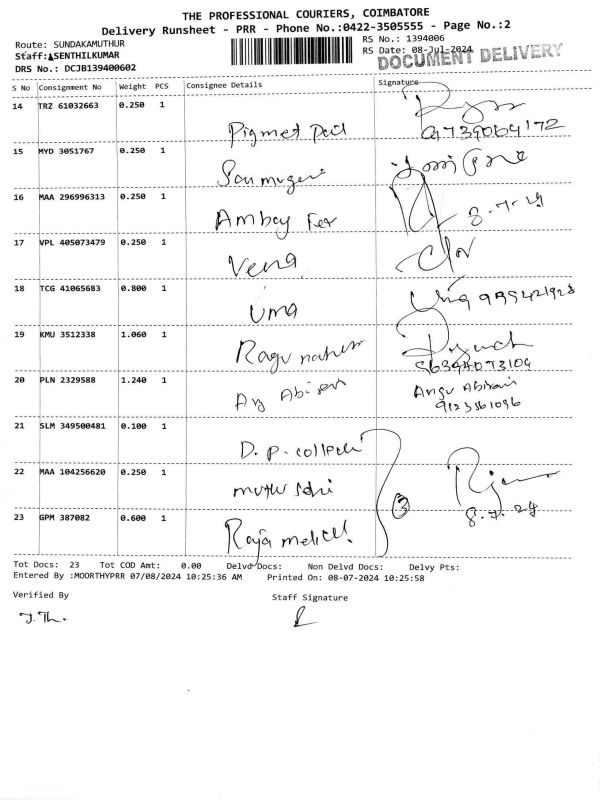 THE PROFESSIONAL COURIERS, COIMBATORE
Delivery Runsheet - PRR - Phone No.:0422-3505555 - Page No.:2
Route: SUNDAKAMUTHUR
RS No.: 1394006
Staff: SENTHILKUMAR
RS Date: 08-Jul-2024
DOCUMENT DELIVERY
DRS No.: DCJB139400602
S No Consignment No Weight PCS Consignee Details Signature
14 TRZ 61032663 0.250 1
Pigmet
15 MYD 3051767 0.250 1
16 MAA 296996313 0.250 1
Ambay Fer 8-7-24
17 VPL 405073479 0.250 1
Vena
18 TCG 41065683 0.800 1
Uma Uma
19 KMU 3512338 1.060 1
Ragu
20 PLN 2329588 1.240 1
9123561096
21 SLM 349500481 0.100 1
D.P. college
22 MAA 104256620 0.250 1
muthu 3
8.7.24
23 GPM 387082 0.600 1
Raja medical
Tot Docs: 23 Tot COD Amt: 0.00 Delvd Docs: Non Delvd Docs: Delvy Pts:
Entered By :MOORTHYPRR 07/08/2024 10:25:36 AM Printed On: 08-07-2024 10:25:58
Verified By Staff Signature